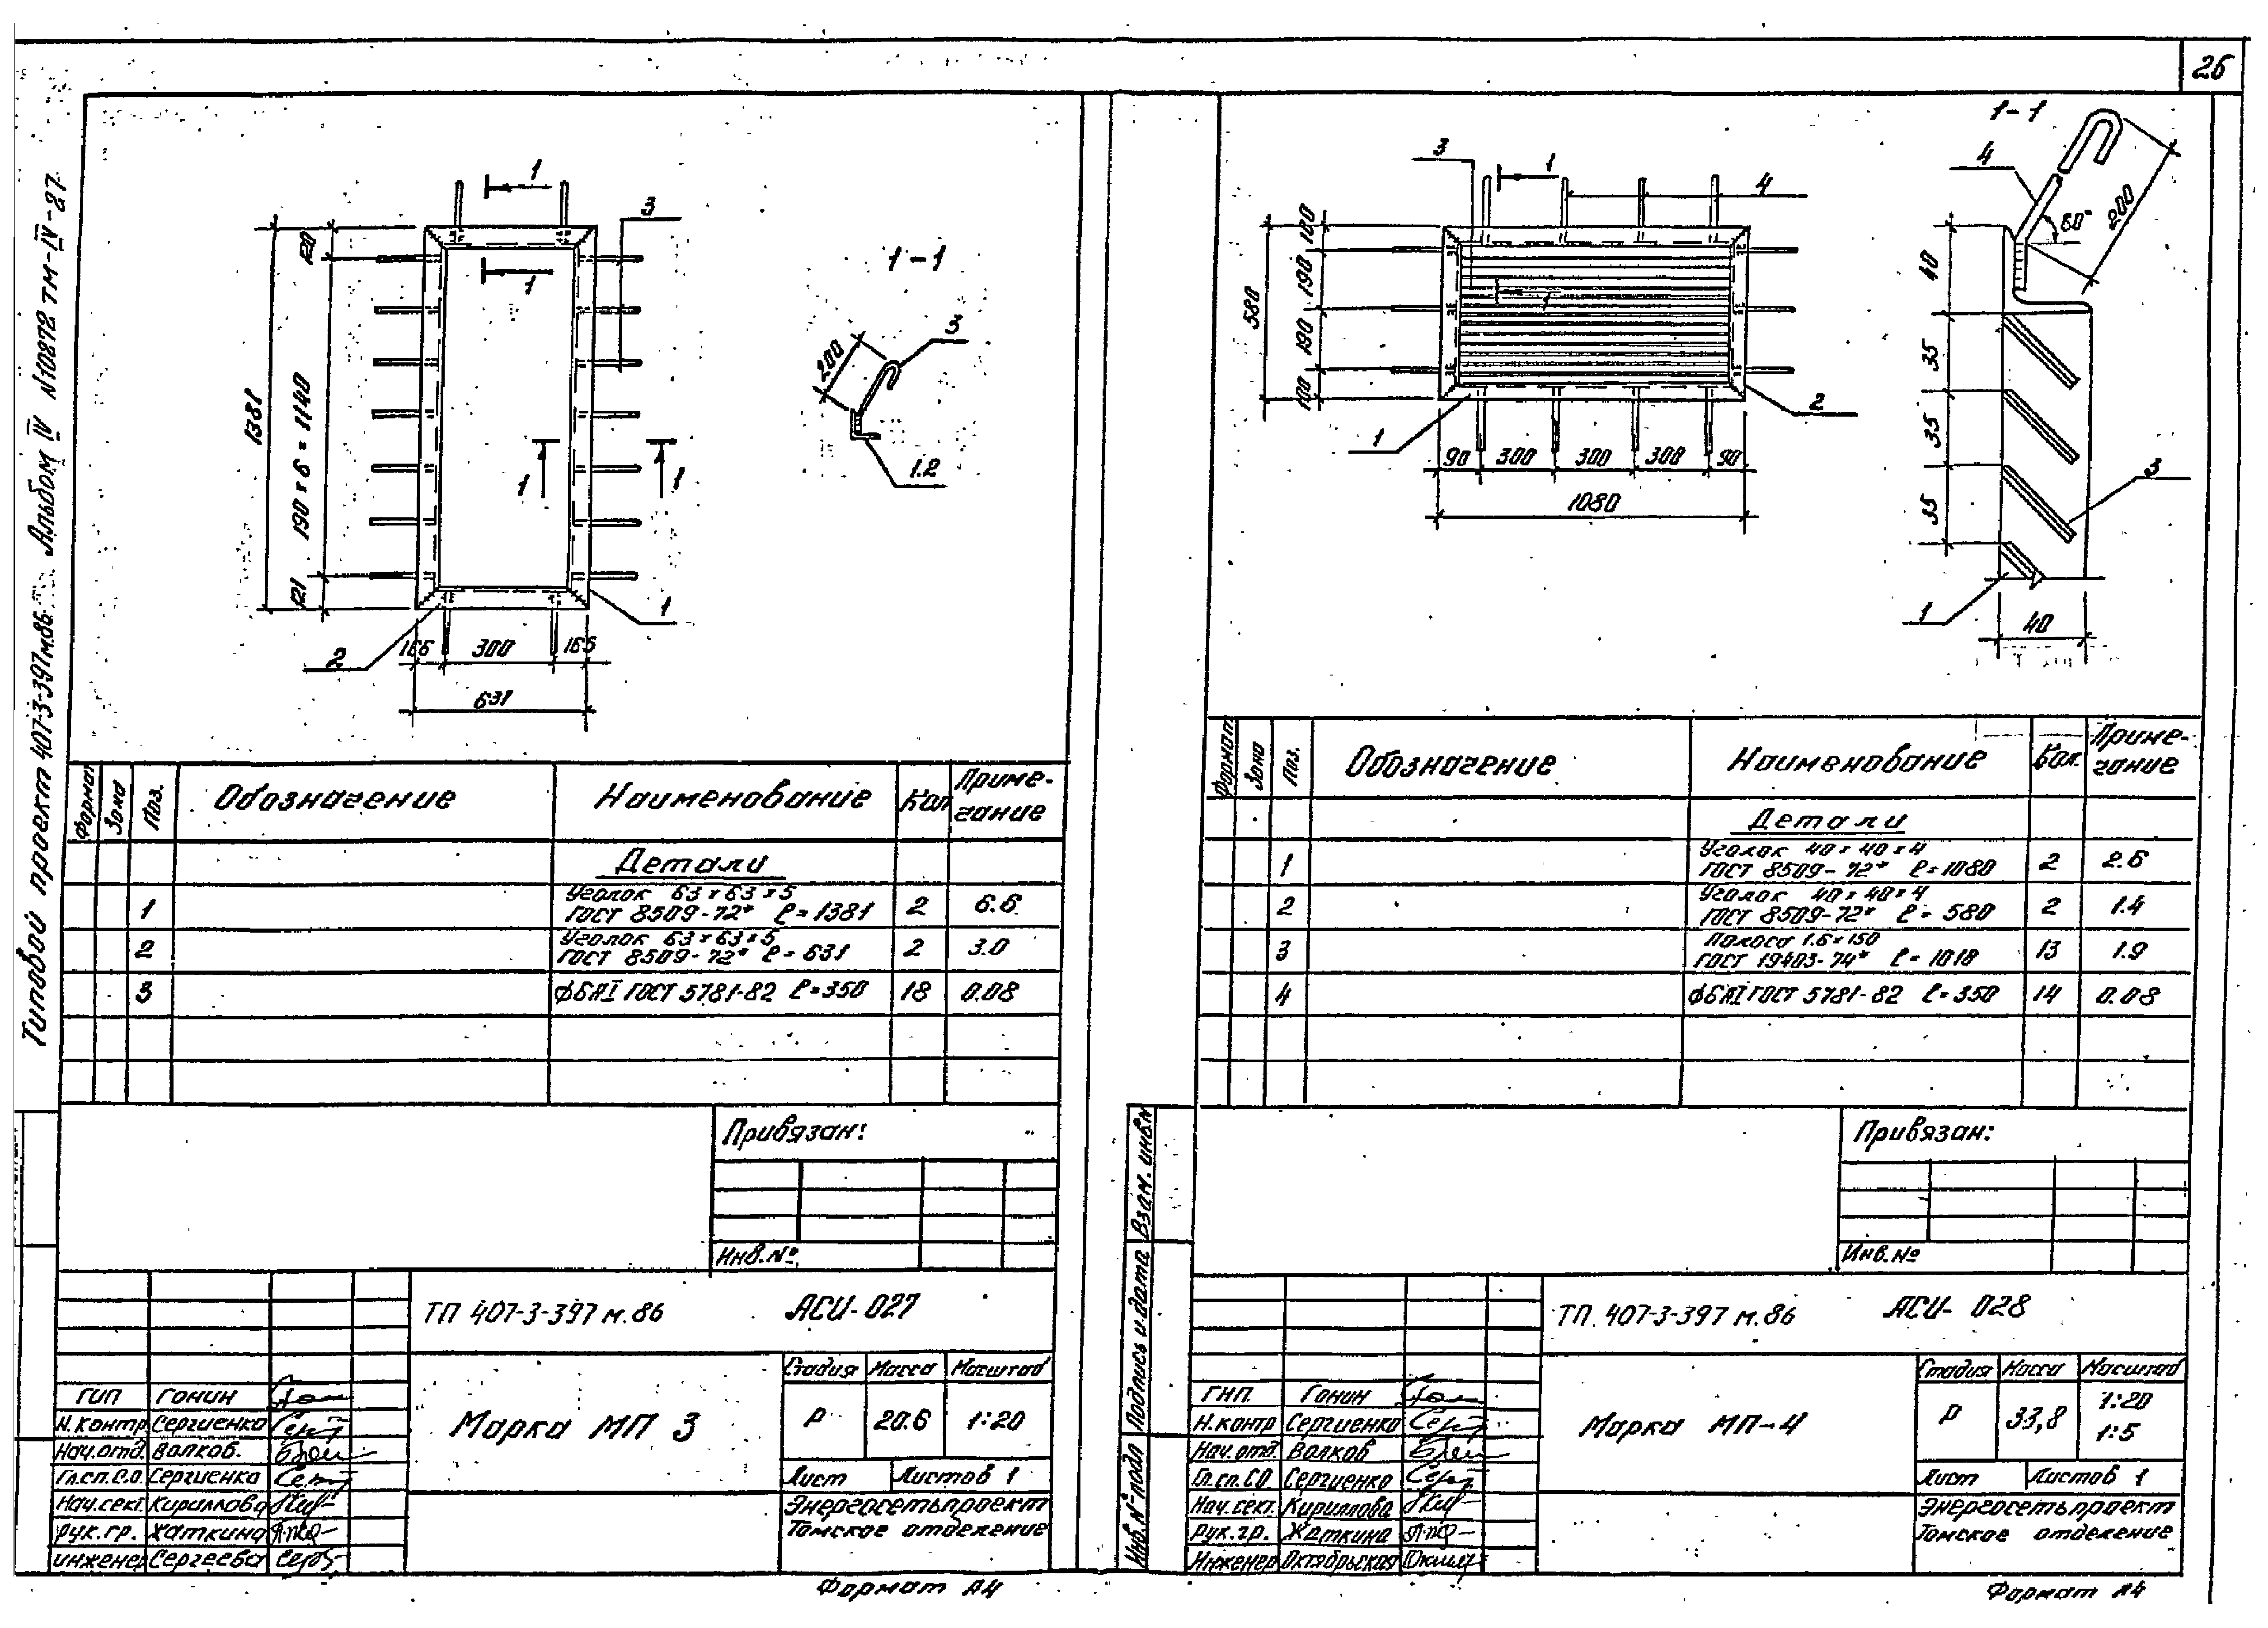 26
Типовой проект 407-3-397м.86 Альбом IV N10872 тм-IV-27
1
3
120
1
1381
190 x 6 = 1140
1
1
121
1
2
166
300
165
631
1-1
200
3
1.2
Формат
Зона
Поз.
Обозначение
Наименование
Кол
Приме-
чание
Детали
1
Уголок 63 x 63 x 5
ГОСТ 8509-72* ℓ=1381
2
6.6
2
Уголок 63 x 63 x 5
ГОСТ 8509-72* ℓ=631
2
3.0
3
ф6АI ГОСТ 5781-82 ℓ=350
18
0.08
Привязан:
Инв.№
ТП 407-3-397 м.86
АСИ-027
ГИП Гонин
Н.контр Сергиенко
Нач.отд. Волков.
Гл.сп.С.О. Сергиенко
Нач.сект. Кириллова
Рук.гр. Хаткина
Инженер Сергеева
Марка МП 3
Стадия
Масса
Масштаб
Р
20.6
1:20
Лист
Листов 1
Энергосетьпроект
Томское отделение
Формат А4
3
1
4
580
100
190
190
100
1
1
2
90
300
300
300
90
1080
1-1
4
60°
200
40
35
35
35
3
1
40
Формат
Зона
Поз.
Обозначение
Наименование
Кол.
Приме-
чание
Детали
1
Уголок 40 x 40 x 4
ГОСТ 8509-72* ℓ=1080
2
2.6
2
Уголок 40 x 40 x 4
ГОСТ 8509-72* ℓ=580
2
1.4
3
Полоса 1.6 x 150
ГОСТ 19403-74* ℓ=1018
13
1.9
4
ф6АI ГОСТ 5781-82 ℓ=350
14
0.08
Привязан:
Инв.№
Взам. инв.№
Подпись и дата
Инв.№ подл
ТП 407-3-397 м.86
АСИ-028
ГИП. Гонин
Н.контр Сергиенко
Нач.отд. Волков
Гл.сп.СО Сергиенко
Нач.сект. Кириллова
Рук.гр. Хаткина
Инженер Октябрьская
Марка МП-4
Стадия
Масса
Масштаб
Р
33,8
1:20
1:5
Лист
Листов 1
Энергосетьпроект
Томское отделение
Формат А4